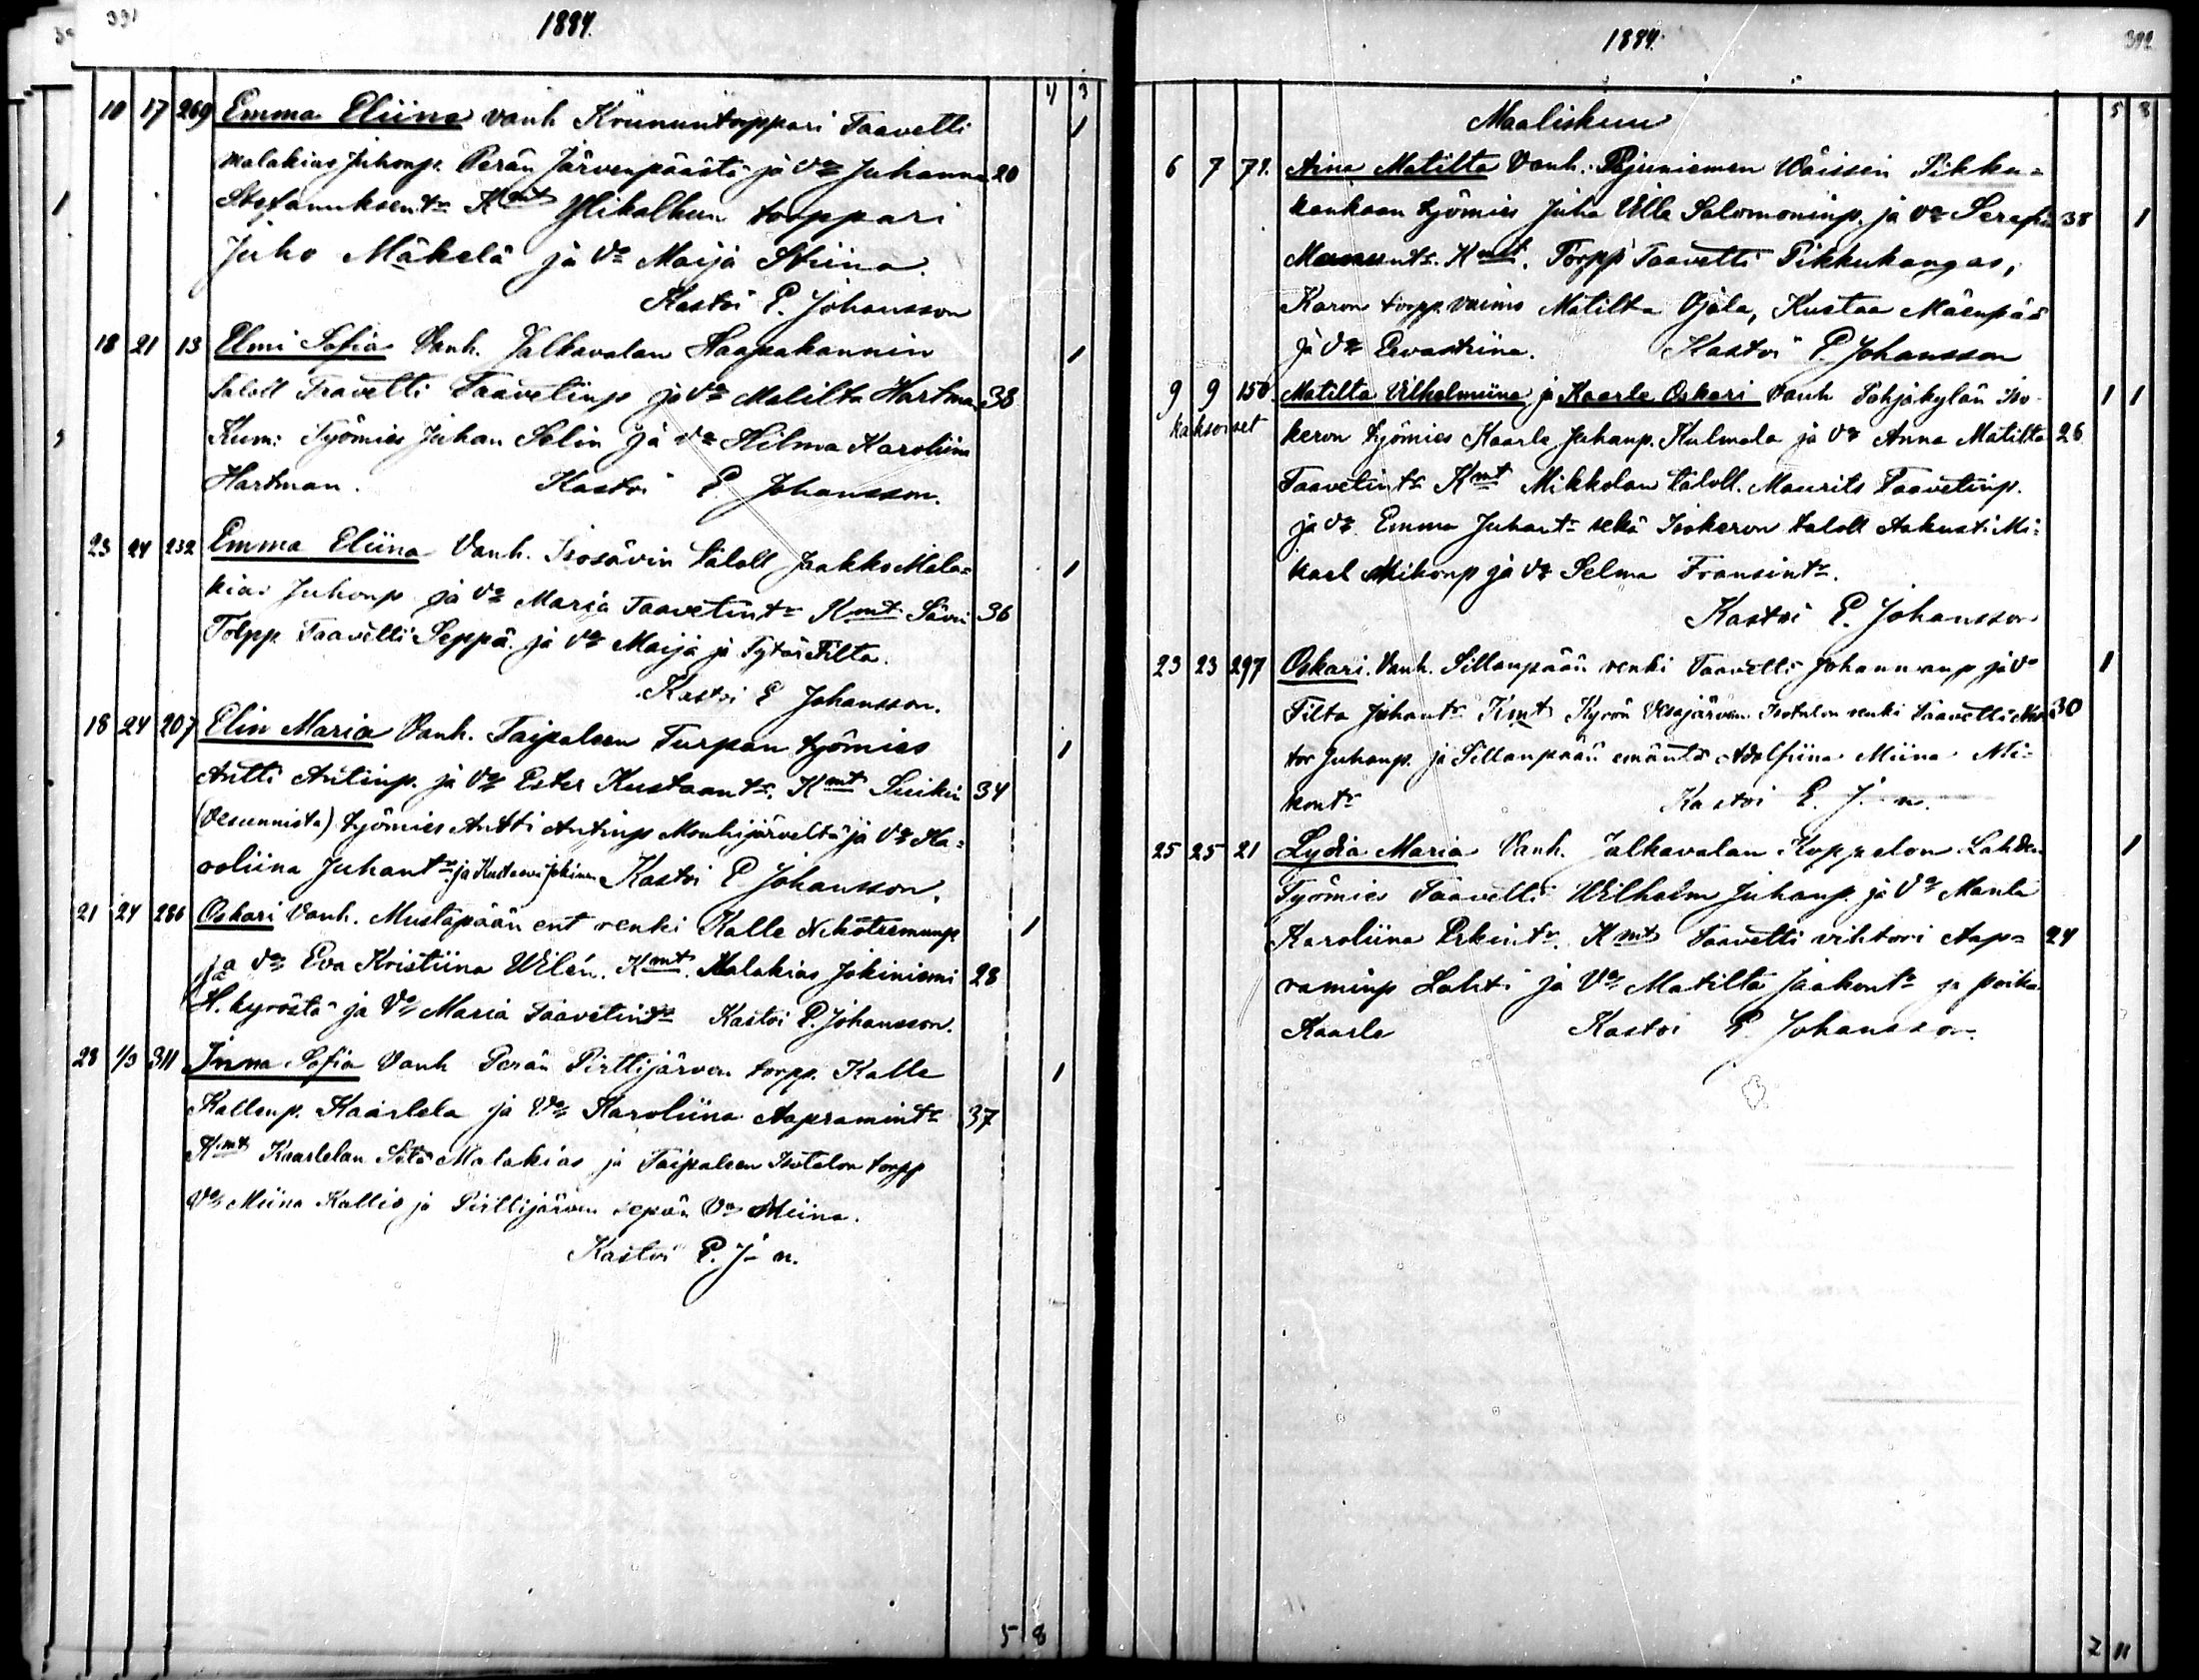 391
1884.
4 3
10 17 269 Emma Eliina vanh Kruununtorppari Taavetti 1
Malakias Juhonp. Perän Järvenpäästä ja Vo Juhanna 20
Stefanuksentr Kmt Ylikalkun torppari
Juho Mäkelä ja Vo Maija Stiina.
Kastoi E. Johansson
18 21 13 Elmi Sofia Vanh. Jalkavalan Haapakannin 1
taloll Taavetti Taavetinp ja Vo Matilta Hartman 38
Kum: Työmies Juhan Selin ja Vo Hilma Karoliina
Hartman. Kastoi E. Johansson.
23 24 232 Emma Eliina Vanh. Isosävin taloll Jaakko Mala= 1
kias Juhonp ja Vo Marja Taavetintr Kmt Sävi 36
Torpp. Taavetti Seppä ja Vo Maija ja Tytär Tilta.
Kastoi E Johansson.
18 24 207 Elin Maria Vanh. Taipaleen Turpan työmies 1
Antti Antinp. ja Vo Ester Kustaantr. Kmt Suikin 34
(Vesunnista) työmies Antti Antinp Mouhijärveltä ja Vo Ka=
roliina Juhantr ja Kustaavi Jokinen Kastoi E Johansson.
21 24 286 Oskari Vanh. Mustapään ent renki Kalle 1
ja Vo Eva Kristiina Wilén. Kmt. Malakias Jokiniemi 28
H. kyröstä ja Vo Maria Taavetintr Kastoi E. Johansson.
28 1/3 311 Inna Sofia Vanh Perän Pirttijärven torpp. Kalle 1
Kallenp. Kaarlela ja Vo Karoliina Aapramintr 37
Kmt Kaarlelan Setä Malakias ja Taipaleen Isotalon torpp
Vo Miina Kallio ja Pirttijärven sepän Vo Miina.
Kastoi E. J-n.
5 8
1884.
392
5 8
Maaliskuu
6 7 71. Aina Matilta Vanh. Pajuniemen Wäissin Pikku=
kankaan työmies Juha Ville Salomoninp. ja Vo Serafia 38 1
Kmt. Torpp Taavetti Pikkukangas,
Karon torpp. vaimo Matilta Ojala, Kustaa Mäenpää
ja Vo Eevastiina. Kastoi E. Johansson
9 9 150 Matilta Vilhelmiina ja Kaarle Oskari Vanh Sahjakylän Iso- 1 1
kaksoiset
keron työmies Kaarle Juhanp. Kulmala ja Vo Anna Matilta 26
Taavetintr Kmt Mikkolan taloll. Maurits Taavetinp.
ja Vo Emma Juhantr sekä Isokeron taloll Aakusti Mi=
kael Mikonp ja Vo Selma Fransintr.
Kastoi E. Johansson
23 23 297 Oskari. Vanh. Sillanpään renki Taavetti Johannanp ja Vo 1
Tilta Juhantr Kmt Kyrön Vesajärven Isotalon renki Taavetti 30
tor Juhanp. ja Sillanpään emäntä Adolfiina Miina Mi=
kontr Kastoi E. J-n.
25 25 21 Lydia Maria Vanh. Jalkavalan Koppelon Lahden 1
Työmies Taavetti Wilhelm Juhanp. ja Vo Manta
Karoliina Erkintr. Kmt Taavetti vihtori Aap= 24
raminp Lahti ja Vo Matilta Jaakontr ja poika
Kaarle Kastoi E. Johansson.
2 11